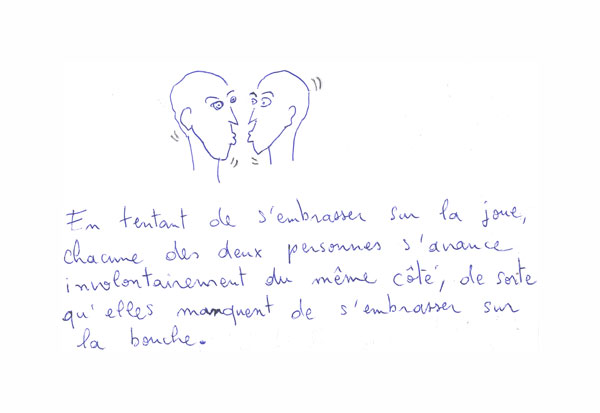 En tentant de s'embrasser sur la joue,
chacune des deux personnes s'avance
involontairement du même côté, de sorte
qu'elles manquent de s'embrasser sur
la bouche.